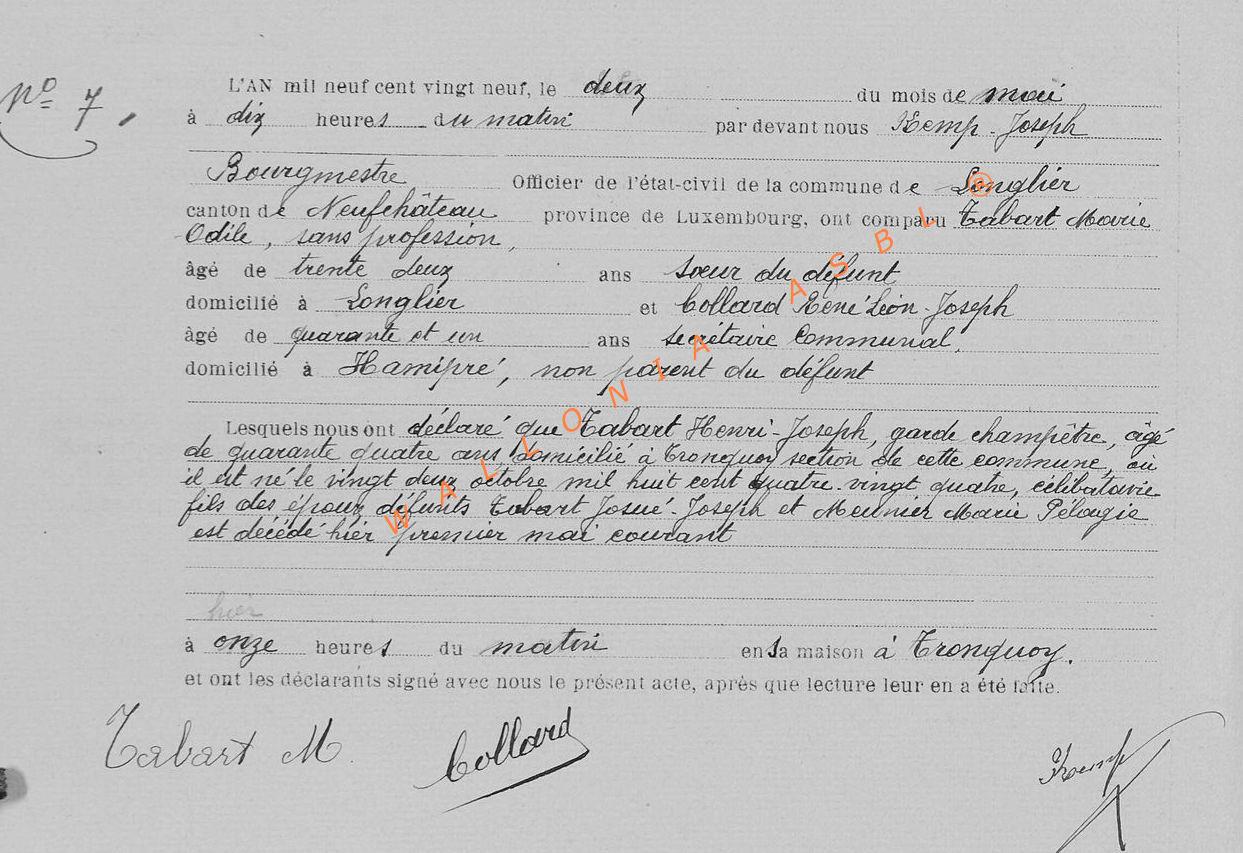 Nº 7,
L'AN mil neuf cent vingt neuf, le deux du mois de mai
à dix heures du matin par devant nous Kemp Joseph
Bourgmestre Officier de l'état-civil de la commune de Longlier
canton de Neufchâteau province de Luxembourg, ont comparu Tabart Marie
Odile, sans profession,
âgé de trente deux ans sœur du défunt
domicilié à Longlier et Collard René Léon-Joseph
âgé de quarante et un ans secrétaire Communal,
domicilié à Hamipré, non parent du défunt
Lesquels nous ont déclaré que Tabart Henri-Joseph, garde champêtre, âgé
de quarante quatre ans domicilié à Tronquoy section de cette commune, où
il est né le vingt deux octobre mil huit cent quatre-vingt quatre, célibataire
fils des époux défunts Tabart Josué-Joseph et Meunier Marie Pélagie
est décédé hier premier mai courant
hier
à onze heures du matin en sa maison à Tronquoy.
et ont les déclarants signé avec nous le présent acte, après que lecture leur en a été faite.
Tabart M. Collard Kemp
WALLONIA ASBL @